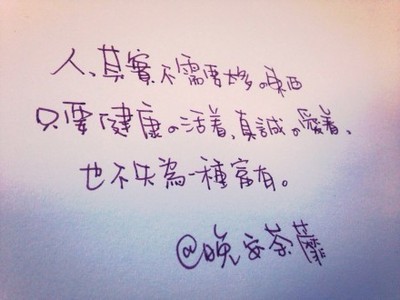 人、其實不需要太多の東西
只要健康の活着、真誠の愛着、
也不失為一種富有。
@晚安荼蘼